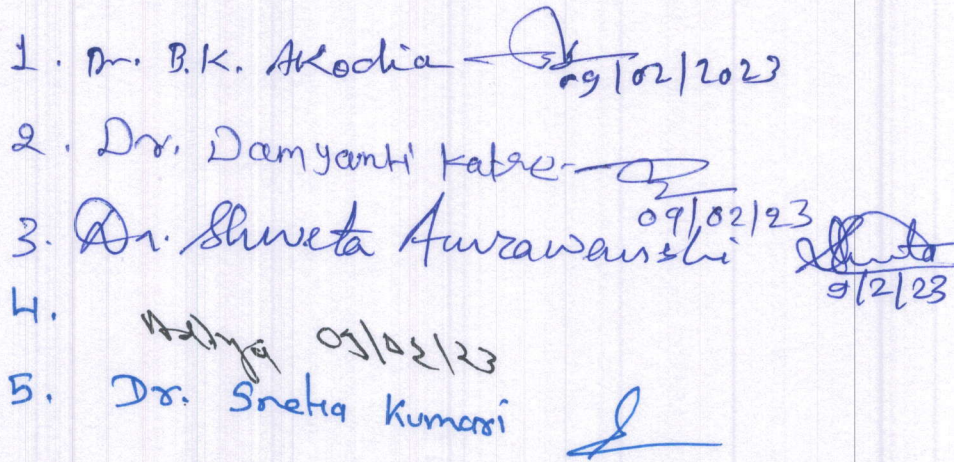 1. Dr. B.K. Akodia 09/02/2023
2. Dr. Damyanti Katre 09/02/23
3. Dr. Shweta Aurawanshi Shweta 9/2/23
4. 09/02/23
5. Dr. Sneha Kumari